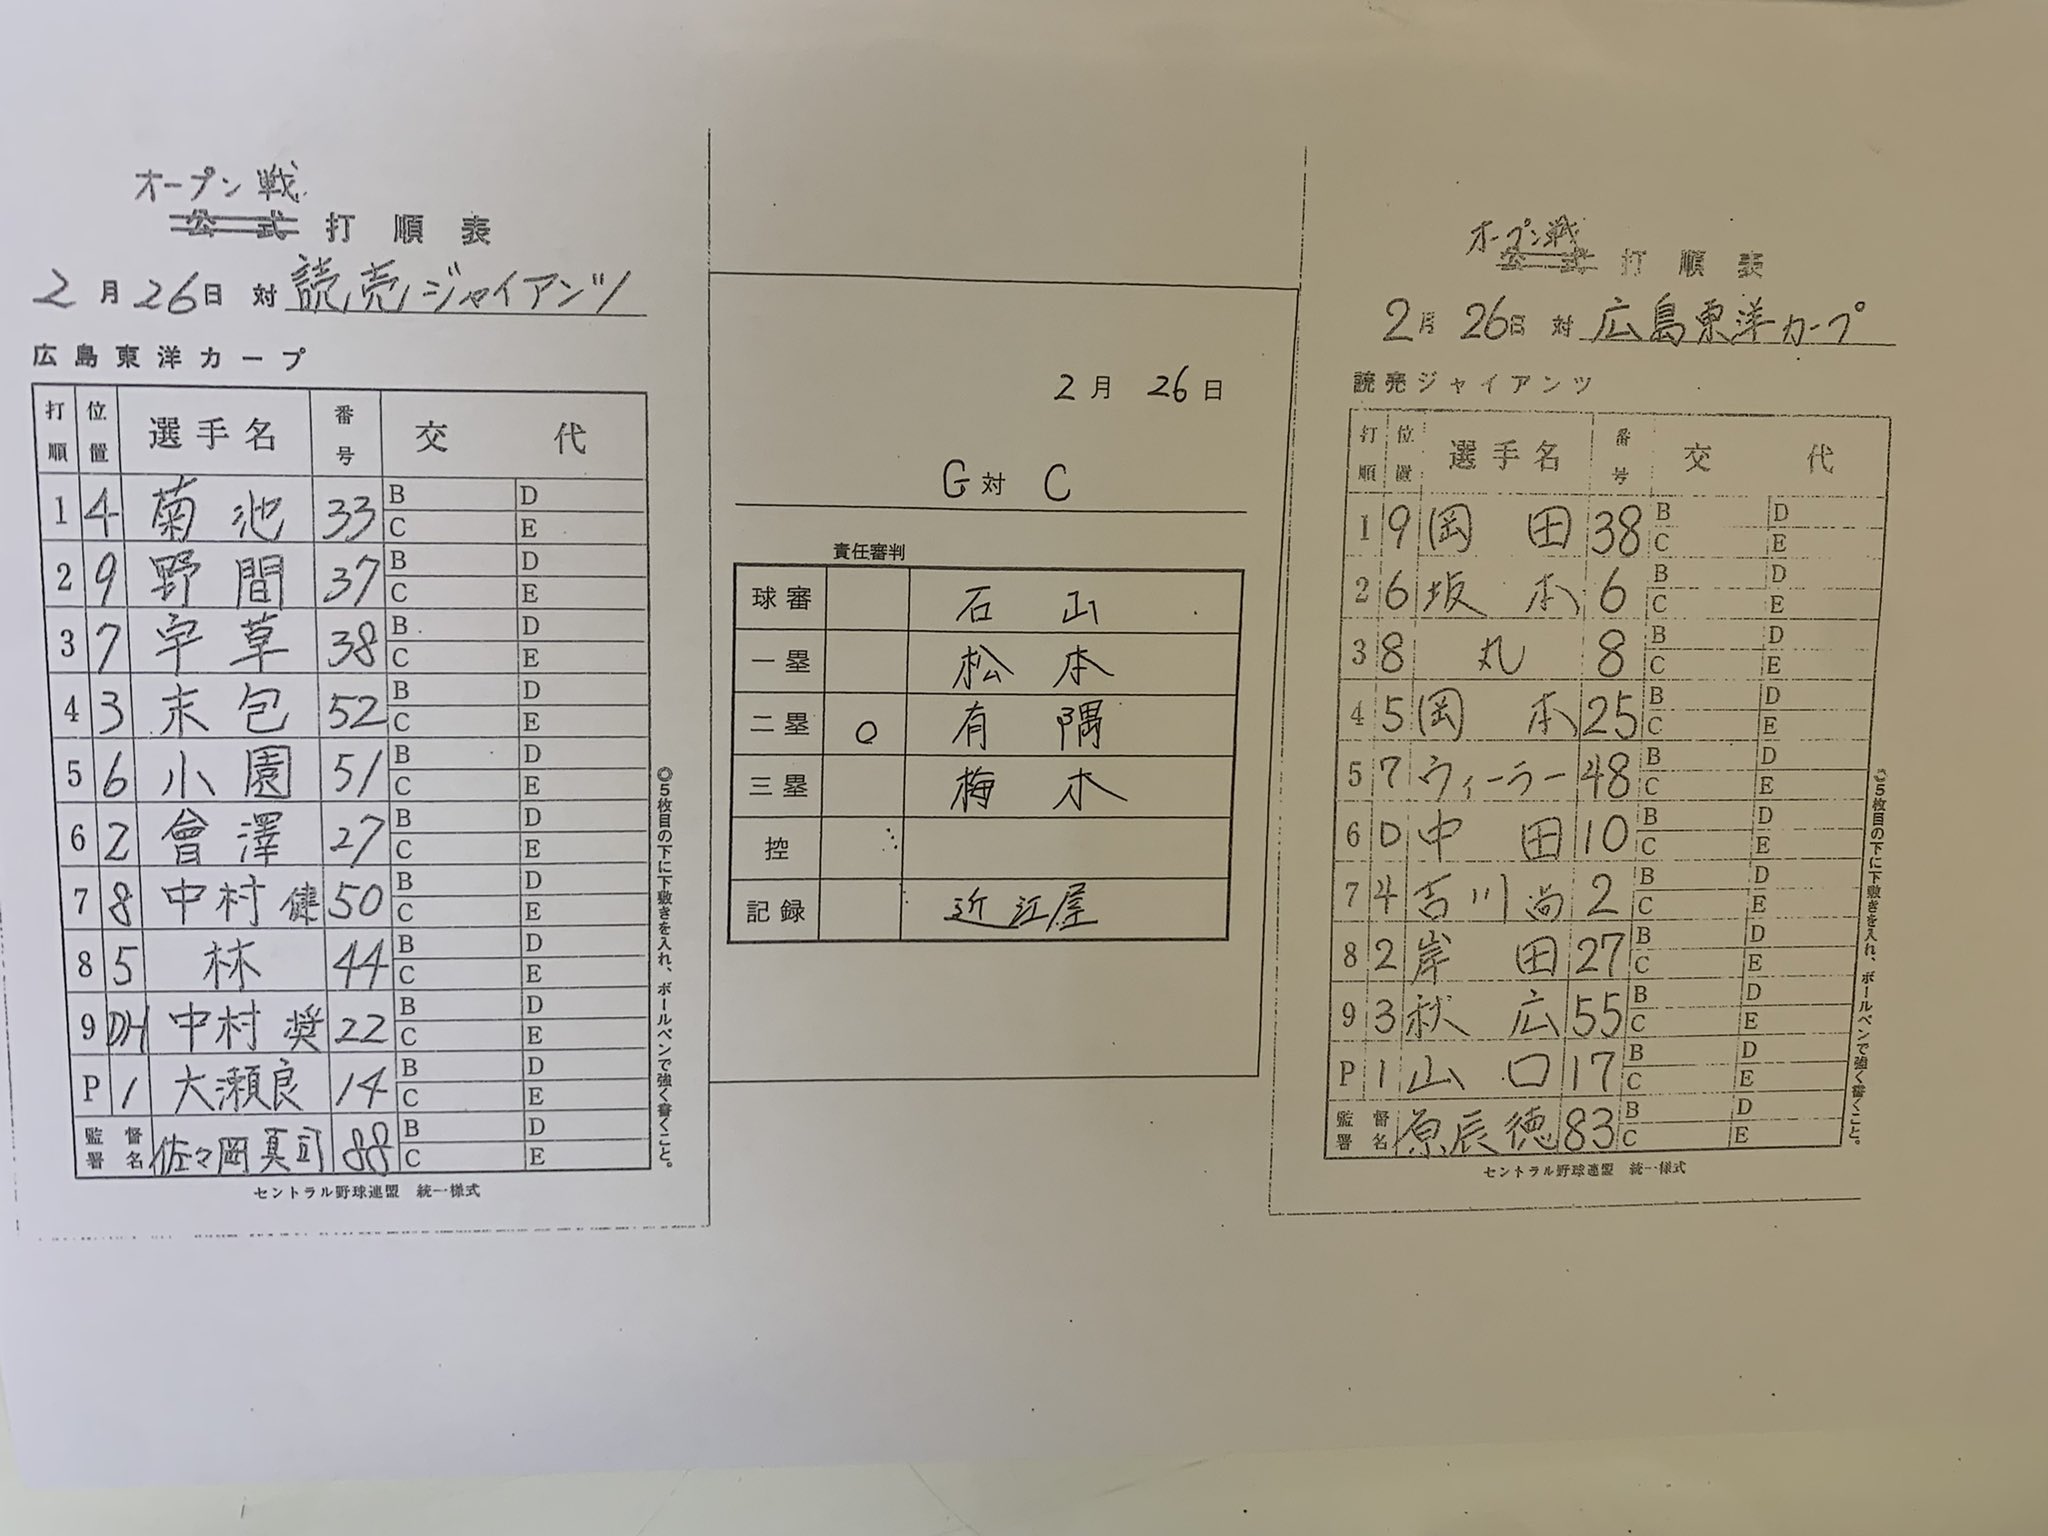 オープン戦
公式 打順表
2月26日 対 読売ジャイアンツ
広島東洋カープ
打順 位置 選手名 番号 交代
1 4 菊池 33 B D C E
2 9 野間 37 B D C E
3 7 宇草 38 B D C E
4 3 末包 52 B D C E
5 6 小園 51 B D C E
6 2 會澤 27 B D C E
7 8 中村健 50 B D C E
8 5 林 44 B D C E
9 DH 中村奨 22 B D C E
P 1 大瀬良 14 B D C E
監督署名 佐々岡真司 88 B D C E
セントラル野球連盟 統一様式
◎5枚目の下に下敷きを入れ、ボールペンで強く書くこと。
2月26日
G対C
責任審判
球審 石山
一塁 松本
二塁 ○ 有隅
三塁 梅木
控
記録 近江屋
オープン戦
公式 打順表
2月26日 対 広島東洋カープ
読売ジャイアンツ
打順 位置 選手名 番号 交代
1 9 岡田 38 B D C E
2 6 坂本 6 B D C E
3 8 丸 8 B D C E
4 5 岡本 25 B D C E
5 7 ウィーラー 48 B D C E
6 D 中田 10 B D C E
7 4 吉川尚 2 B D C E
8 2 岸田 27 B D C E
9 3 秋広 55 B D C E
P 1 山口 17 B D C E
監督署名 原辰徳 83 B D C E
セントラル野球連盟 統一様式
◎5枚目の下に下敷きを入れ、ボールペンで強く書くこと。